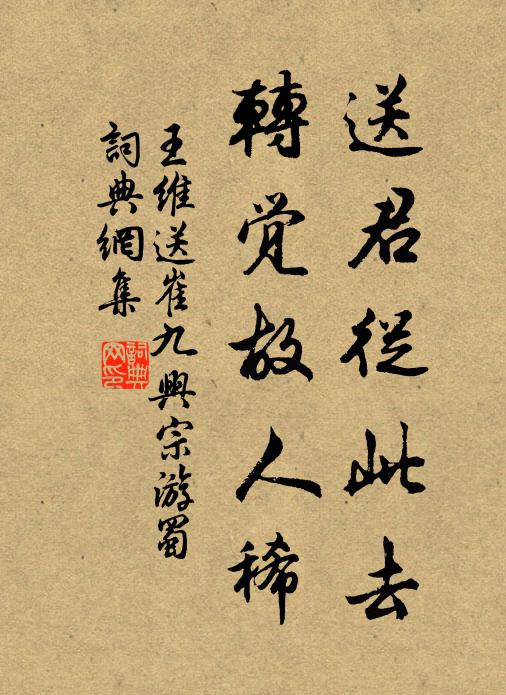 送君從此去
轉覺故人稀
王維送崔九興宗游蜀
詞典網集
詞典網印